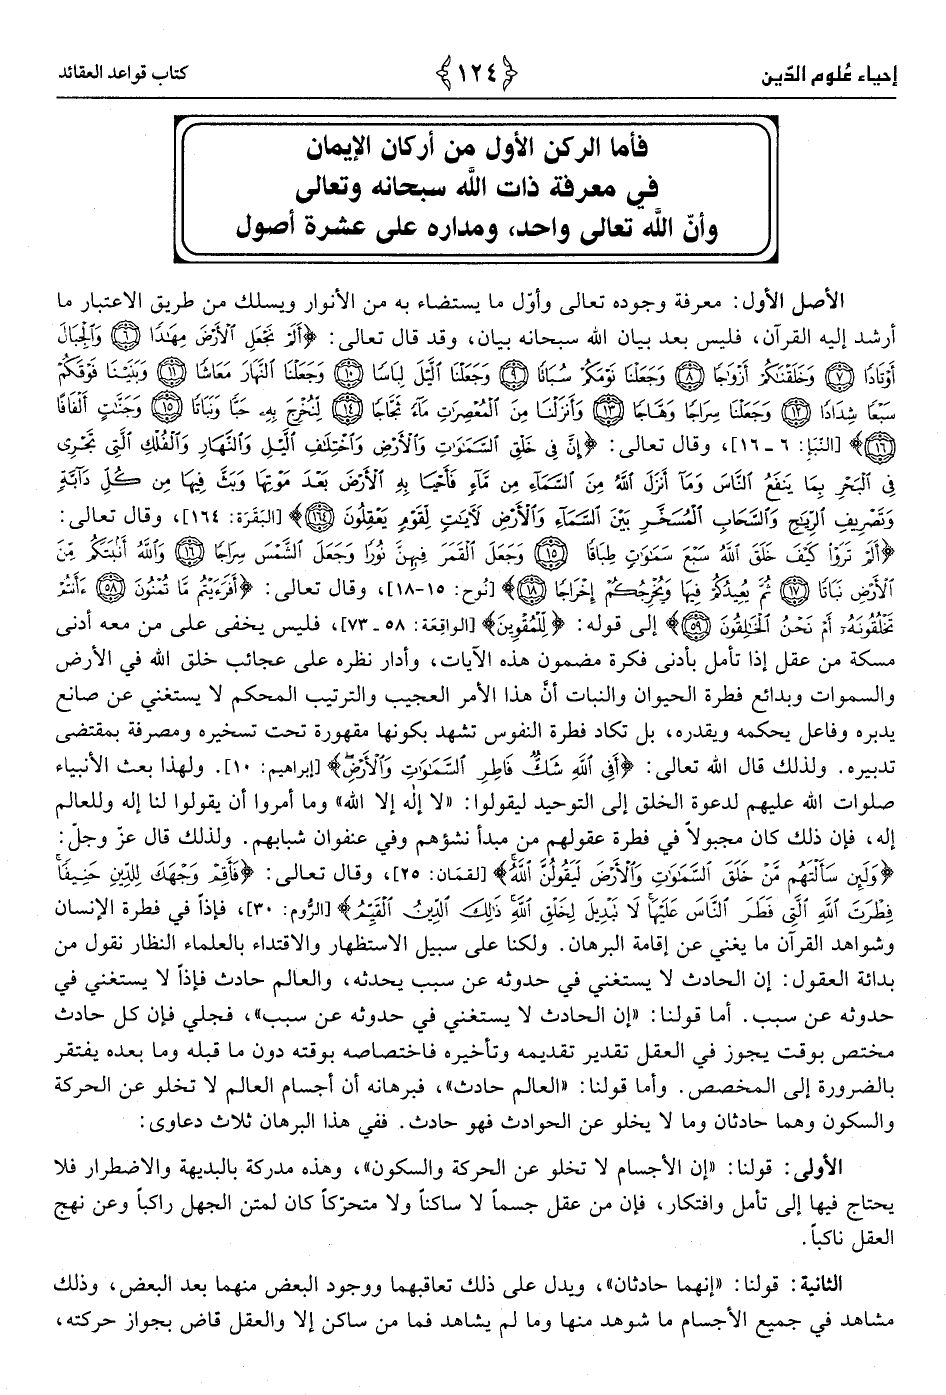 إحياء عُلوم الدّين ﴿١٢٤﴾ كتاب قواعد العقائد
فأما الركن الأول من أركان الإيمان
في معرفة ذات اللَّه سبحانه وتعالى
وأنّ اللَّه تعالى واحد، ومداره على عشرة أصول
الأصل الأول: معرفة وجوده تعالى وأوّل ما يستضاء به من الأنوار ويسلك من طريق الاعتبار ما
أرشد إليه القرآن، فليس بعد بيان الله سبحانه بيان، وقد قال تعالى: ﴿أَلَمْ نَجْعَلِ ٱلْأَرْضَ مِهَٰدًا ﴿٦﴾ وَٱلْجِبَالَ
أَوْتَادًا ﴿٧﴾ وَخَلَقْنَٰكُمْ أَزْوَٰجًا ﴿٨﴾ وَجَعَلْنَا نَوْمَكُمْ سُبَاتًا ﴿٩﴾ وَجَعَلْنَا ٱلَّيْلَ لِبَاسًا ﴿١٠﴾ وَجَعَلْنَا ٱلنَّهَارَ مَعَاشًا ﴿١١﴾ وَبَنَيْنَا فَوْقَكُمْ
سَبْعًا شِدَادًا ﴿١٢﴾ وَجَعَلْنَا سِرَاجًا وَهَّاجًا ﴿١٣﴾ وَأَنزَلْنَا مِنَ ٱلْمُعْصِرَٰتِ مَآءً ثَجَّاجًا ﴿١٤﴾ لِنُخْرِجَ بِهِۦ حَبًّا وَنَبَاتًا ﴿١٥﴾ وَجَنَّٰتٍ أَلْفَافًا
﴿١٦﴾﴾ [النّبَإ: ٦ ـ ١٦]، وقال تعالى: ﴿إِنَّ فِى خَلْقِ ٱلسَّمَٰوَٰتِ وَٱلْأَرْضِ وَٱخْتِلَٰفِ ٱلَّيْلِ وَٱلنَّهَارِ وَٱلْفُلْكِ ٱلَّتِى تَجْرِى
فِى ٱلْبَحْرِ بِمَا يَنفَعُ ٱلنَّاسَ وَمَآ أَنزَلَ ٱللَّهُ مِنَ ٱلسَّمَآءِ مِن مَّآءٍ فَأَحْيَا بِهِ ٱلْأَرْضَ بَعْدَ مَوْتِهَا وَبَثَّ فِيهَا مِن كُلِّ دَآبَّةٍ
وَتَصْرِيفِ ٱلرِّيَٰحِ وَٱلسَّحَابِ ٱلْمُسَخَّرِ بَيْنَ ٱلسَّمَآءِ وَٱلْأَرْضِ لَءَايَٰتٍ لِّقَوْمٍ يَعْقِلُونَ ﴿١٦٤﴾﴾ [البَقَرَة: ١٦٤]، وقال تعالى:
﴿أَلَمْ تَرَوْا۟ كَيْفَ خَلَقَ ٱللَّهُ سَبْعَ سَمَٰوَٰتٍ طِبَاقًا ﴿١٥﴾ وَجَعَلَ ٱلْقَمَرَ فِيهِنَّ نُورًا وَجَعَلَ ٱلشَّمْسَ سِرَاجًا ﴿١٦﴾ وَٱللَّهُ أَنۢبَتَكُم مِّنَ
ٱلْأَرْضِ نَبَاتًا ﴿١٧﴾ ثُمَّ يُعِيدُكُمْ فِيهَا وَيُخْرِجُكُمْ إِخْرَاجًا ﴿١٨﴾﴾ [نُوح: ١٥-١٨]، وقال تعالى: ﴿أَفَرَءَيْتُم مَّا تُمْنُونَ ﴿٥٨﴾ ءَأَنتُمْ
تَخْلُقُونَهُۥٓ أَمْ نَحْنُ ٱلْخَٰلِقُونَ ﴿٥٩﴾﴾ إلى قوله: ﴿لِّلْمُقْوِينَ﴾ [الواقِعَة: ٥٨ ـ ٧٣]، فليس يخفى على من معه أدنى
مسكة من عقل إذا تأمل بأدنى فكرة مضمون هذه الآيات، وأدار نظره على عجائب خلق الله في الأرض
والسموات وبدائع فطرة الحيوان والنبات أنَّ هذا الأمر العجيب والترتيب المحكم لا يستغني عن صانع
يدبره وفاعل يحكمه ويقدره، بل تكاد فطرة النفوس تشهد بكونها مقهورة تحت تسخيره ومصرفة بمقتضى
تدبيره. ولذلك قال الله تعالى: ﴿أَفِى ٱللَّهِ شَكٌّ فَاطِرِ ٱلسَّمَٰوَٰتِ وَٱلْأَرْضِ﴾ [إبراهيم: ١٠]. ولهذا بعث الأنبياء
صلوات الله عليهم لدعوة الخلق إلى التوحيد ليقولوا: «لا إلٰه إلا الله» وما أمروا أن يقولوا لنا إله وللعالم
إله، فإن ذلك كان مجبولاً في فطرة عقولهم من مبدأ نشؤهم وفي عنفوان شبابهم. ولذلك قال عزّ وجلّ:
﴿وَلَئِن سَأَلْتَهُم مَّنْ خَلَقَ ٱلسَّمَٰوَٰتِ وَٱلْأَرْضَ لَيَقُولُنَّ ٱللَّهُ﴾ [لقمَان: ٢٥]، وقال تعالى: ﴿فَأَقِمْ وَجْهَكَ لِلدِّينِ حَنِيفًا
فِطْرَتَ ٱللَّهِ ٱلَّتِى فَطَرَ ٱلنَّاسَ عَلَيْهَا لَا تَبْدِيلَ لِخَلْقِ ٱللَّهِ ذَٰلِكَ ٱلدِّينُ ٱلْقَيِّمُ﴾ [الرُّوم: ٣٠]، فإذاً في فطرة الإنسان
وشواهد القرآن ما يغني عن إقامة البرهان. ولكنا على سبيل الاستظهار والاقتداء بالعلماء النظار نقول من
بدائة العقول: إن الحادث لا يستغني في حدوثه عن سبب يحدثه، والعالم حادث فإذاً لا يستغني في
حدوثه عن سبب. أما قولنا: «إن الحادث لا يستغني في حدوثه عن سبب»، فجلي فإن كل حادث
مختص بوقت يجوز في العقل تقدير تقديمه وتأخيره فاختصاصه بوقته دون ما قبله وما بعده يفتقر
بالضرورة إلى المخصص. وأما قولنا: «العالم حادث»، فبرهانه أن أجسام العالم لا تخلو عن الحركة
والسكون وهما حادثان وما لا يخلو عن الحوادث فهو حادث. ففي هذا البرهان ثلاث دعاوى:
الأولى: قولنا: «إن الأجسام لا تخلو عن الحركة والسكون»، وهذه مدركة بالبديهة والاضطرار فلا
يحتاج فيها إلى تأمل وافتكار، فإن من عقل جسماً لا ساكناً ولا متحرّكاً كان لمتن الجهل راكباً وعن نهج
العقل ناكباً.
الثانية: قولنا: «إنهما حادثان»، ويدل على ذلك تعاقبهما ووجود البعض منهما بعد البعض، وذلك
مشاهد في جميع الأجسام ما شوهد منها وما لم يشاهد فما من ساكن إلا والعقل قاض بجواز حركته،